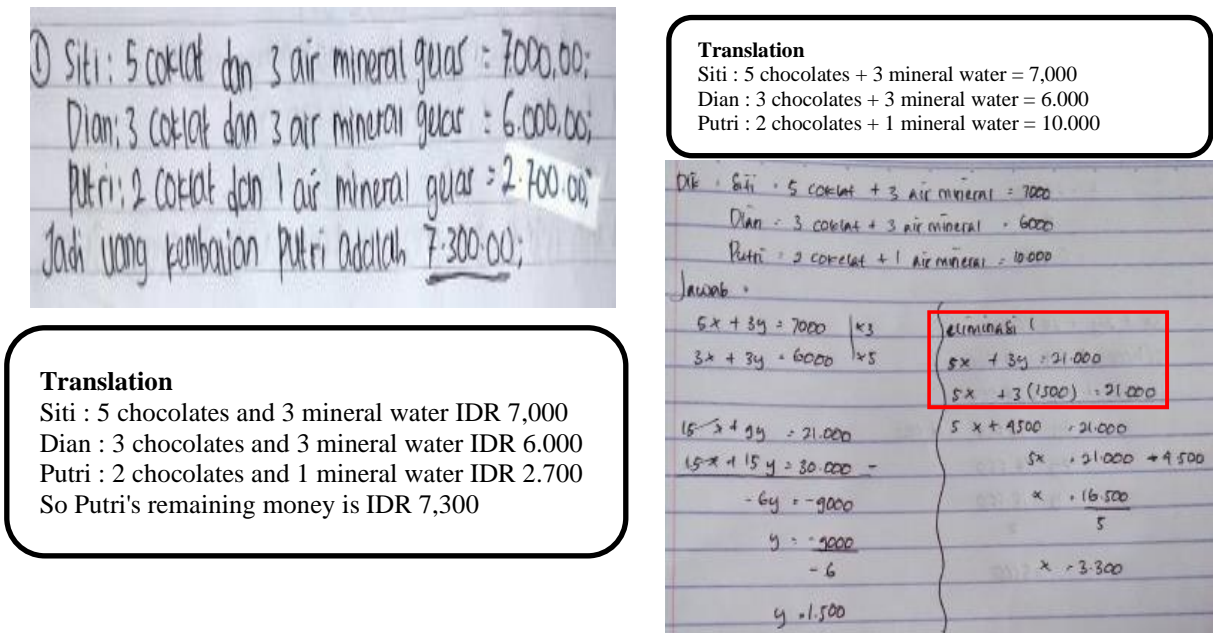 ① Siti : 5 coklat dan 3 air mineral gelas = 7000,00;
Dian : 3 coklat dan 3 air mineral gelas = 6.000,00;
Putri : 2 coklat dan 1 air mineral gelas = 2.700.00;
Jadi uang kembalian Putri adalah 7.300.00;
Translation
Siti : 5 chocolates and 3 mineral water IDR 7,000
Dian : 3 chocolates and 3 mineral water IDR 6.000
Putri : 2 chocolates and 1 mineral water IDR 2.700
So Putri's remaining money is IDR 7,300
Translation
Siti : 5 chocolates + 3 mineral water = 7,000
Dian : 3 chocolates + 3 mineral water = 6.000
Putri : 2 chocolates + 1 mineral water = 10.000
Dik : Siti : 5 coklat + 3 air mineral = 7000
Dian : 3 coklat + 3 air mineral = 6000
Putri : 2 cokelat + 1 air mineral = 10.000
Jawab :
5x + 3y = 7000 | x3
3x + 3y = 6000 | x5
15x + 9y = 21.000
15x + 15y = 30.000 -
-6y = -9000
y = -9000
-6
y = 1.500
eliminasi (
5x + 3y = 21.000
5x + 3(1500) = 21.000
5x + 4500 = 21.000
5x = 21.000 - 4500
x = 16.500
5
x = 3.300